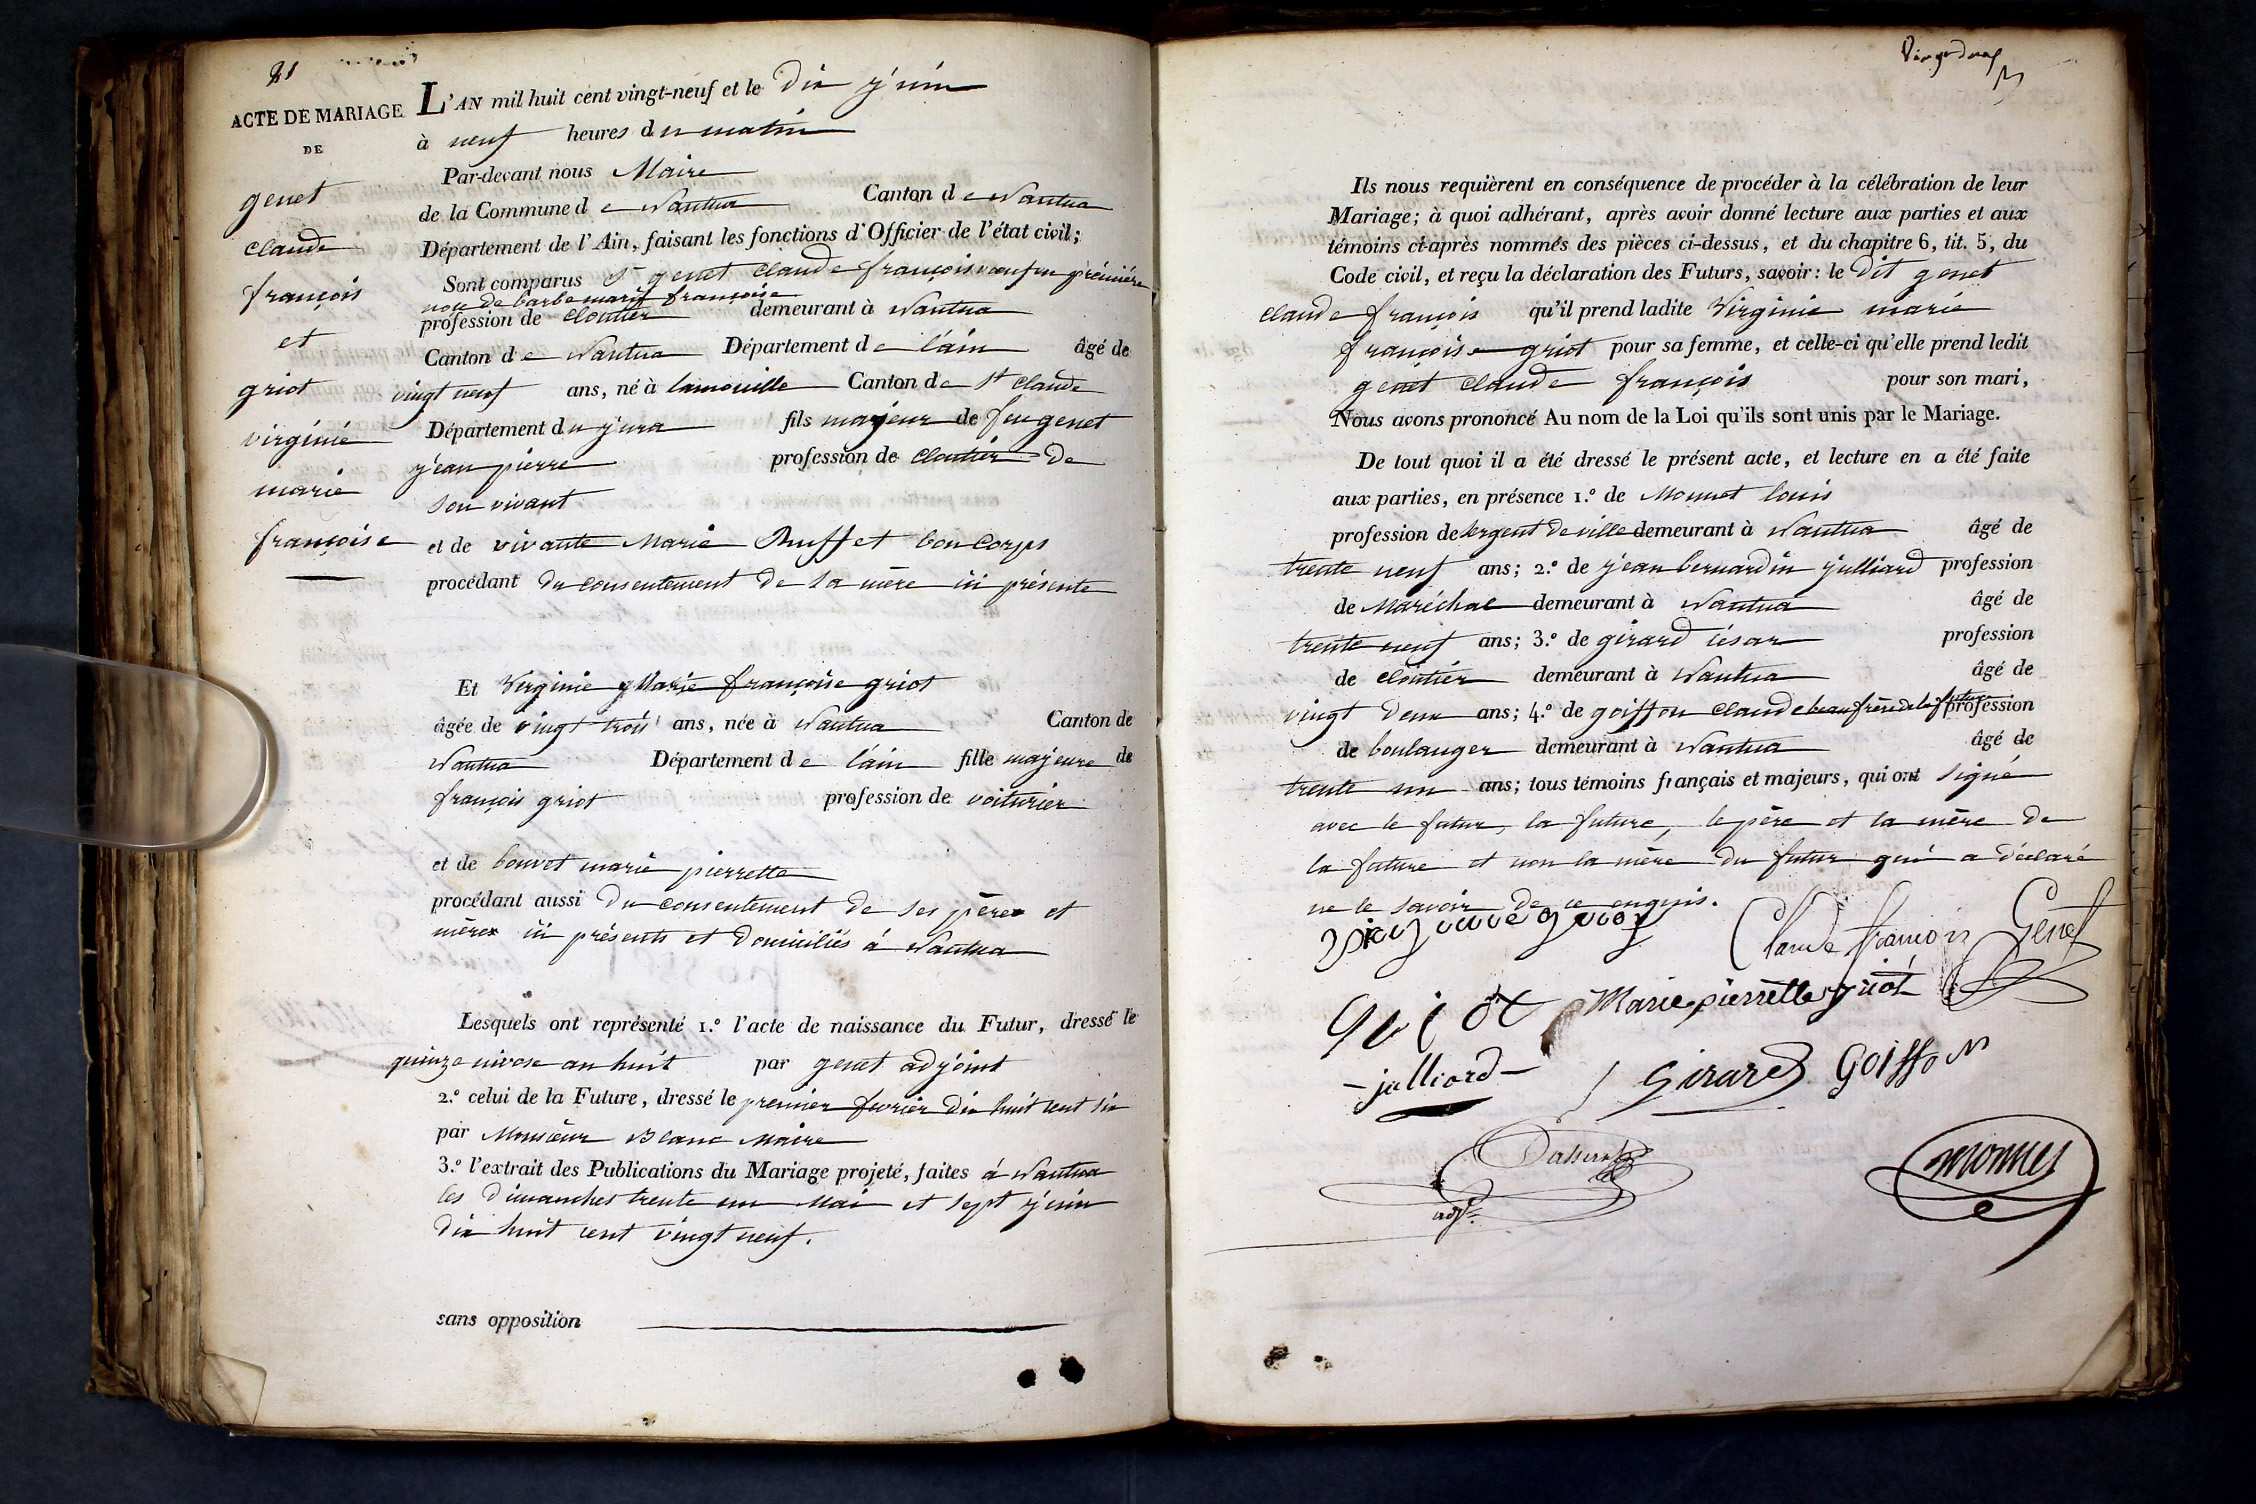 21
ACTE DE MARIAGE
DE
genet
claude
françois
et
griot
virginie
marie
françoise
L'AN mil huit cent vingt-neuf et le Dix juin
à neuf heures du matin
Par-devant nous Maire
de la Commune de Nantua Canton de Nantua
Département de l'Ain, faisant les fonctions d'Officier de l'état civil;
Sont comparus Sr genet claude françois veuf en première
noce de barbe marie françoise
profession de cloutier demeurant à Nantua
Canton de Nantua Département de l'ain âgé de
vingt neuf ans, né à lamouille Canton de St claude
Département du jura fils majeur de feu genet
jean pierre profession de cloutier De
son vivant
et de vivante Marie Buffet bon Corps
procédant du consentement De sa mère ici présente
Et Virginie Marie françoise griot
âgée de vingt trois ans, née à Nantua Canton de
Nantua Département de l'ain fille majeure de
françois griot profession de voiturier
et de bouvet marie pierrette
procédant aussi Du consentement De ses père et
mère ici présents et Domiciliés à Nantua
Lesquels ont représenté 1.º l'acte de naissance du Futur, dressé le
quinze nivose an huit par genet adjoint
2.º celui de la Future, dressé le premier fevrier Dix huit cent six
par Monsieur Blanc Maire
3.º l'extrait des Publications du Mariage projeté, faites à Nantua
les Dimanches trente un Mai et sept juin
Dix huit cent vingt neuf.
sans opposition
Ils nous requièrent en conséquence de procéder à la célébration de leur
Mariage; à quoi adhérant, après avoir donné lecture aux parties et aux
témoins ci-après nommés des pièces ci-dessus, et du chapitre 6, tit. 5, du
Code civil, et reçu la déclaration des Futurs, savoir: le Dit genet
claude françois qu'il prend ladite Virginie marie
françoise griot pour sa femme, et celle-ci qu'elle prend ledit
genet claude françois pour son mari,
Nous avons prononcé Au nom de la Loi qu'ils sont unis par le Mariage.
De tout quoi il a été dressé le présent acte, et lecture en a été faite
aux parties, en présence 1.º de Monnet louis
profession de sergent De ville demeurant à Nantua âgé de
trente neuf ans; 2.º de jean bernardin julliard profession
de Maréchal demeurant à Nantua âgé de
trente neuf ans; 3.º de girard césar profession
de cloutier demeurant à Nantua âgé de
vingt Deux ans; 4.º de goiffon claude beau frère de la future profession
de boulanger demeurant à Nantua âgé de
trente un ans; tous témoins français et majeurs, qui ont signé
avec le futur, la future, le père et la mère De
la future et non la mère Du futur qui a déclaré
ne le savoir De ce enquis.
Claude françois Genet
griot Marie pierrette griot
julliard Girard Goiffon
adjt
monnet